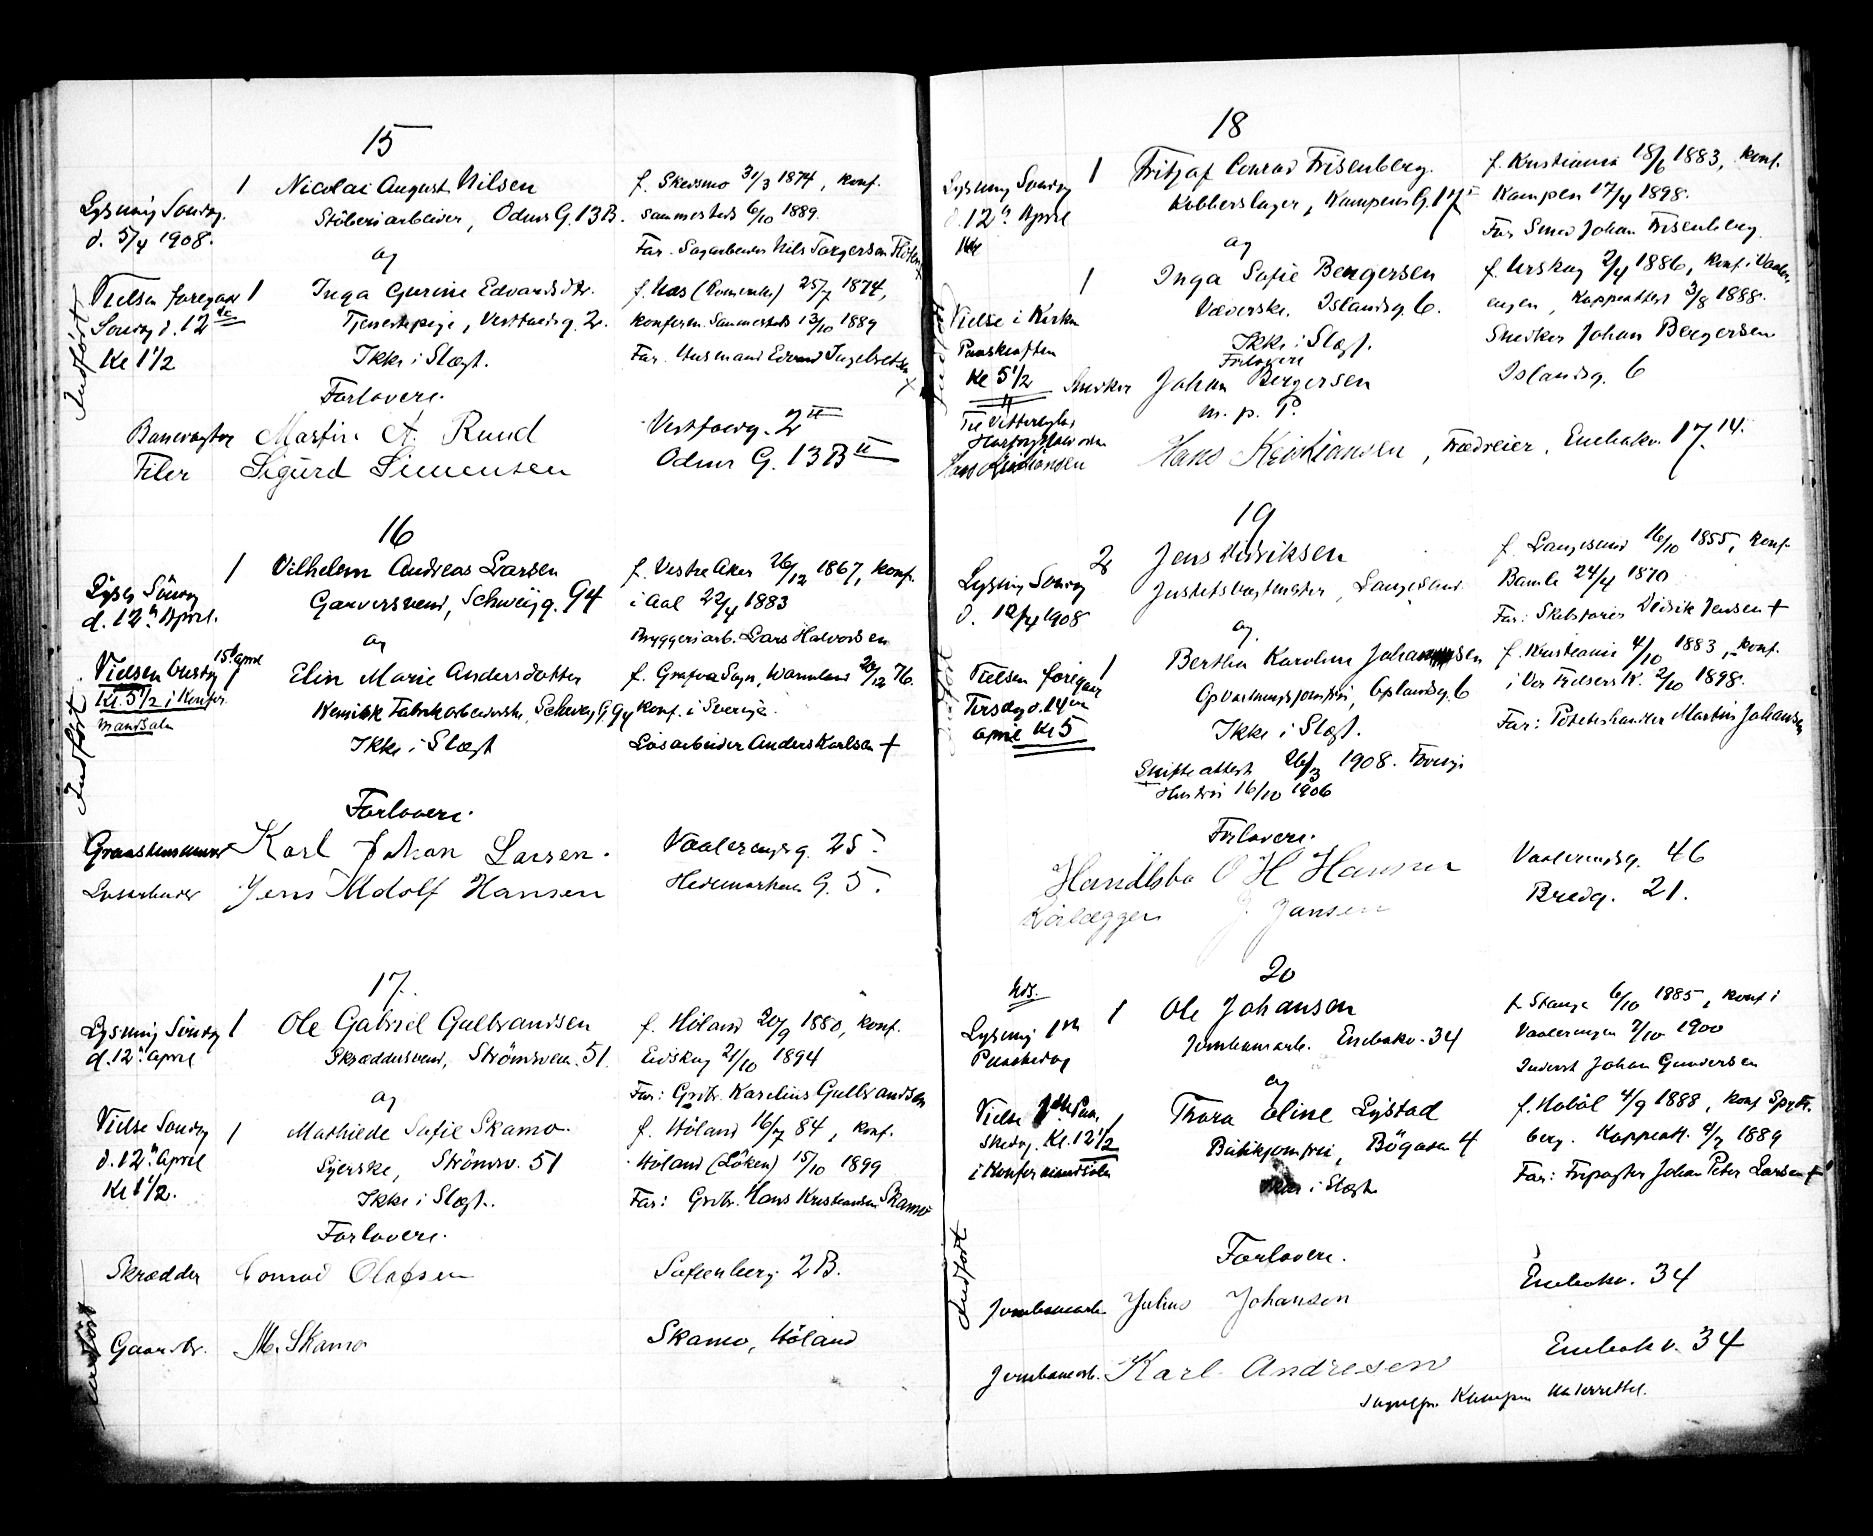 15
Lysning Søndag
d. 5/4 1908.
1 Nicolai August Nilsen
Støberiarbeider, Odins G. 13 B.
og
f. Skedsmo 31/3 1874, konf.
sammesteds 6/10 1889.
Far. Sagarbeider Nils Torgersen
Vielsen foregaar 1
Søndag d. 12te
Kl 1 1/2
Inga Gurine Edvardsdtr.
Tjenestepige, Vestfoldg. 2.
Ikke i Slægt.
f. Næs (Romerike) 25/7 1874,
konferm. Sammesteds 13/10 1889
Far. Husmand Edvard Ingebretsen
Indført
Forlovere.
Banevogter Martin A. Ruud Vestfoldg. 2 II
Filer Sigurd Simensen Odins G. 13 B II
16
Lysn Søndag
d. 12te April.
1 Vilhelm Andreas Larsen
Garversvend, Schweigg. 94
og
f. Vestre Aker 26/12 1867, konf.
i Aal 22/4 1883
Bryggeriarb. Lars Halvorsen
Vielsen Onsdag 15de april
Kl. 5 1/2 i Konfir
mandsalen
1
Elin Marie Andersdatter
Kemisk Fabrikarbeiderske, Schweigg. 94
Ikke i Slægt
f. Grafva Sogn, Wärmland 20/12 76.
konf. i Sverige.
Løsarbeider Anders Karlsen +
Indført
Forlovere.
Karl Johan Larsen. Vaalerengg. 25.
Løsarbeider Jens Adolf Hansen Hedemarkens G. 5.
17.
Lysning Søndag
d. 12te april
1 Ole Gabriel Gulbrandsen
Skræddersvend, Strømsveien. 51.
og
f. Høland 20/9 1880, konf.
Eidskog 21/10 1894
Far: Grdbr. Karelius Gulbrandsen
Vielse Søndag
d. 12te April
Kl 1 1/2.
1
Mathilde Sofie Skamo.
Syerske, Strømsv. 51
Ikke i Slægt.
f. Høland 16/7 84, konf.
Høland (Løken) 15/10 1899
Far: Grdbr. Hans Kristiansen Skamo
Forlovere.
Skrædder Conrad Olafsen Sofienberg. 2 B.
Gaardbr. M. Skamo Skamo, Høland
Indført
18
Lysning Søndag
d 12te April
1 Fritjof Conrad Frisenberg.
Kobberslager, Kampens G. 17
og
f. Kristiania 18/6 1883, konf.
Kampen 17/4 1898.
Far Smed Johan Frisenberg.
Vielse i Kirken
Paaskeaften
Kl 5 1/2
1
Inga Sofie Bergersen
Væverske. Islandsg. 6.
Ikke i Slægt.
f. Urskog 2/4 1886, konf. i Vaaler
engen, Koppeattest 3/8 1888.
Snedker Johan Bergersen
Forlovere
Snedker Johan Bergersen Islandsg. 6
m. p. P.
Hans Kristiansen
Hans Kristiansen, Trædreier, Enebakv. 17.
19
Lysning Søndag
d. 12/4 1908
2 Jens Didriksen
Justetsvagtmester, Langesund.
og
f. Langesund 16/10 1855, konf.
Bamle 24/4 1870
Far: Skibsfører Didrik Jensen +
Vielsen foregaar
Tirsdag d. 14de
april Kl 5
1
Bertha Karoline Johannesen
Opvartningsjomfru, Oplandsg. 6
Ikke i Slægt.
f. Kristiania 4/10 1883, konf.
i Vor Frelsers K. 2/10 1898.
Far: Poteteshandler Martin Johansen
Skifteattest 26/3 1908. Forrige
Hustru 16/10 1906
Indført
Forlovere.
O H Hansen Vaalerendg. 46
J. Jansen Bredg. 21.
20
Lysning 1ste
Paaskedag
1 Ole Johansen
Jernbanearb. Enebakv. 34
og
f. Stange 6/10 1885, konf i
Vaalerengen 7/10 1900
Inderst Johan Gundersen
Vielse 1ste Paa
skedag. Kl. 12 1/2
i Konfirmandsalen
1
Thora Oline Lystad
Butikjomfru, Bøgata 4
Ikke i Slægt
f. Hobøl 4/9 1888, konf Spyde
berg. Koppeatt. 9/7 1889
Far: Johan Peter Larsen +
Indført
Forlovere.
Jernbanearb. Julius Johansen Enebakv. 34
Jernbanearb. Karl Andresen Enebakv. 34
Kampen